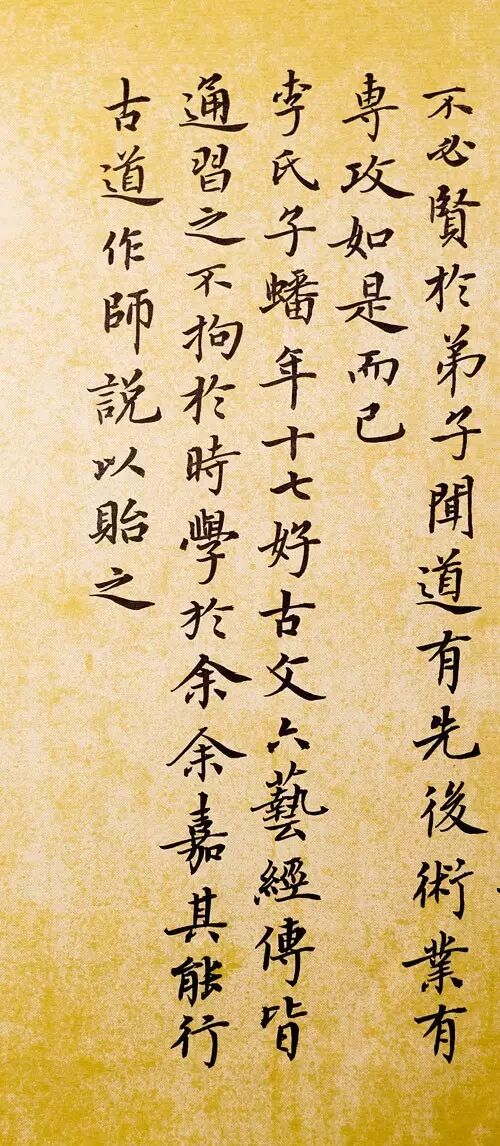 不必賢於弟子聞道有先後術業有
専攻如是而已
李氏子蟠年十七好古文六藝經傳皆
通習之不拘於時學於余余嘉其能行
古道作師說以貽之